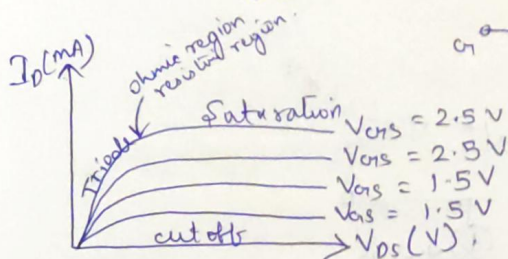 I_D (mA)
ohmic region
resistive region.
G
Triode
Saturation
V_GS = 2.5 V
V_GS = 2.5 V
V_GS = 1.5 V
V_GS = 1.5 V
cutoff
V_DS (V).